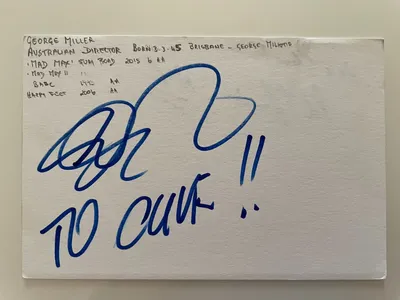 GEORGE MILLER
AUSTRALIAN DIRECTOR BORN 3.3.45 BRISBANE - GEORGE
"MAD MAX" FURY ROAD 2015 6 AA
"MAD MAX II
BABE AA
HAPPY FEET 2006 AA
TO CLIVE !!